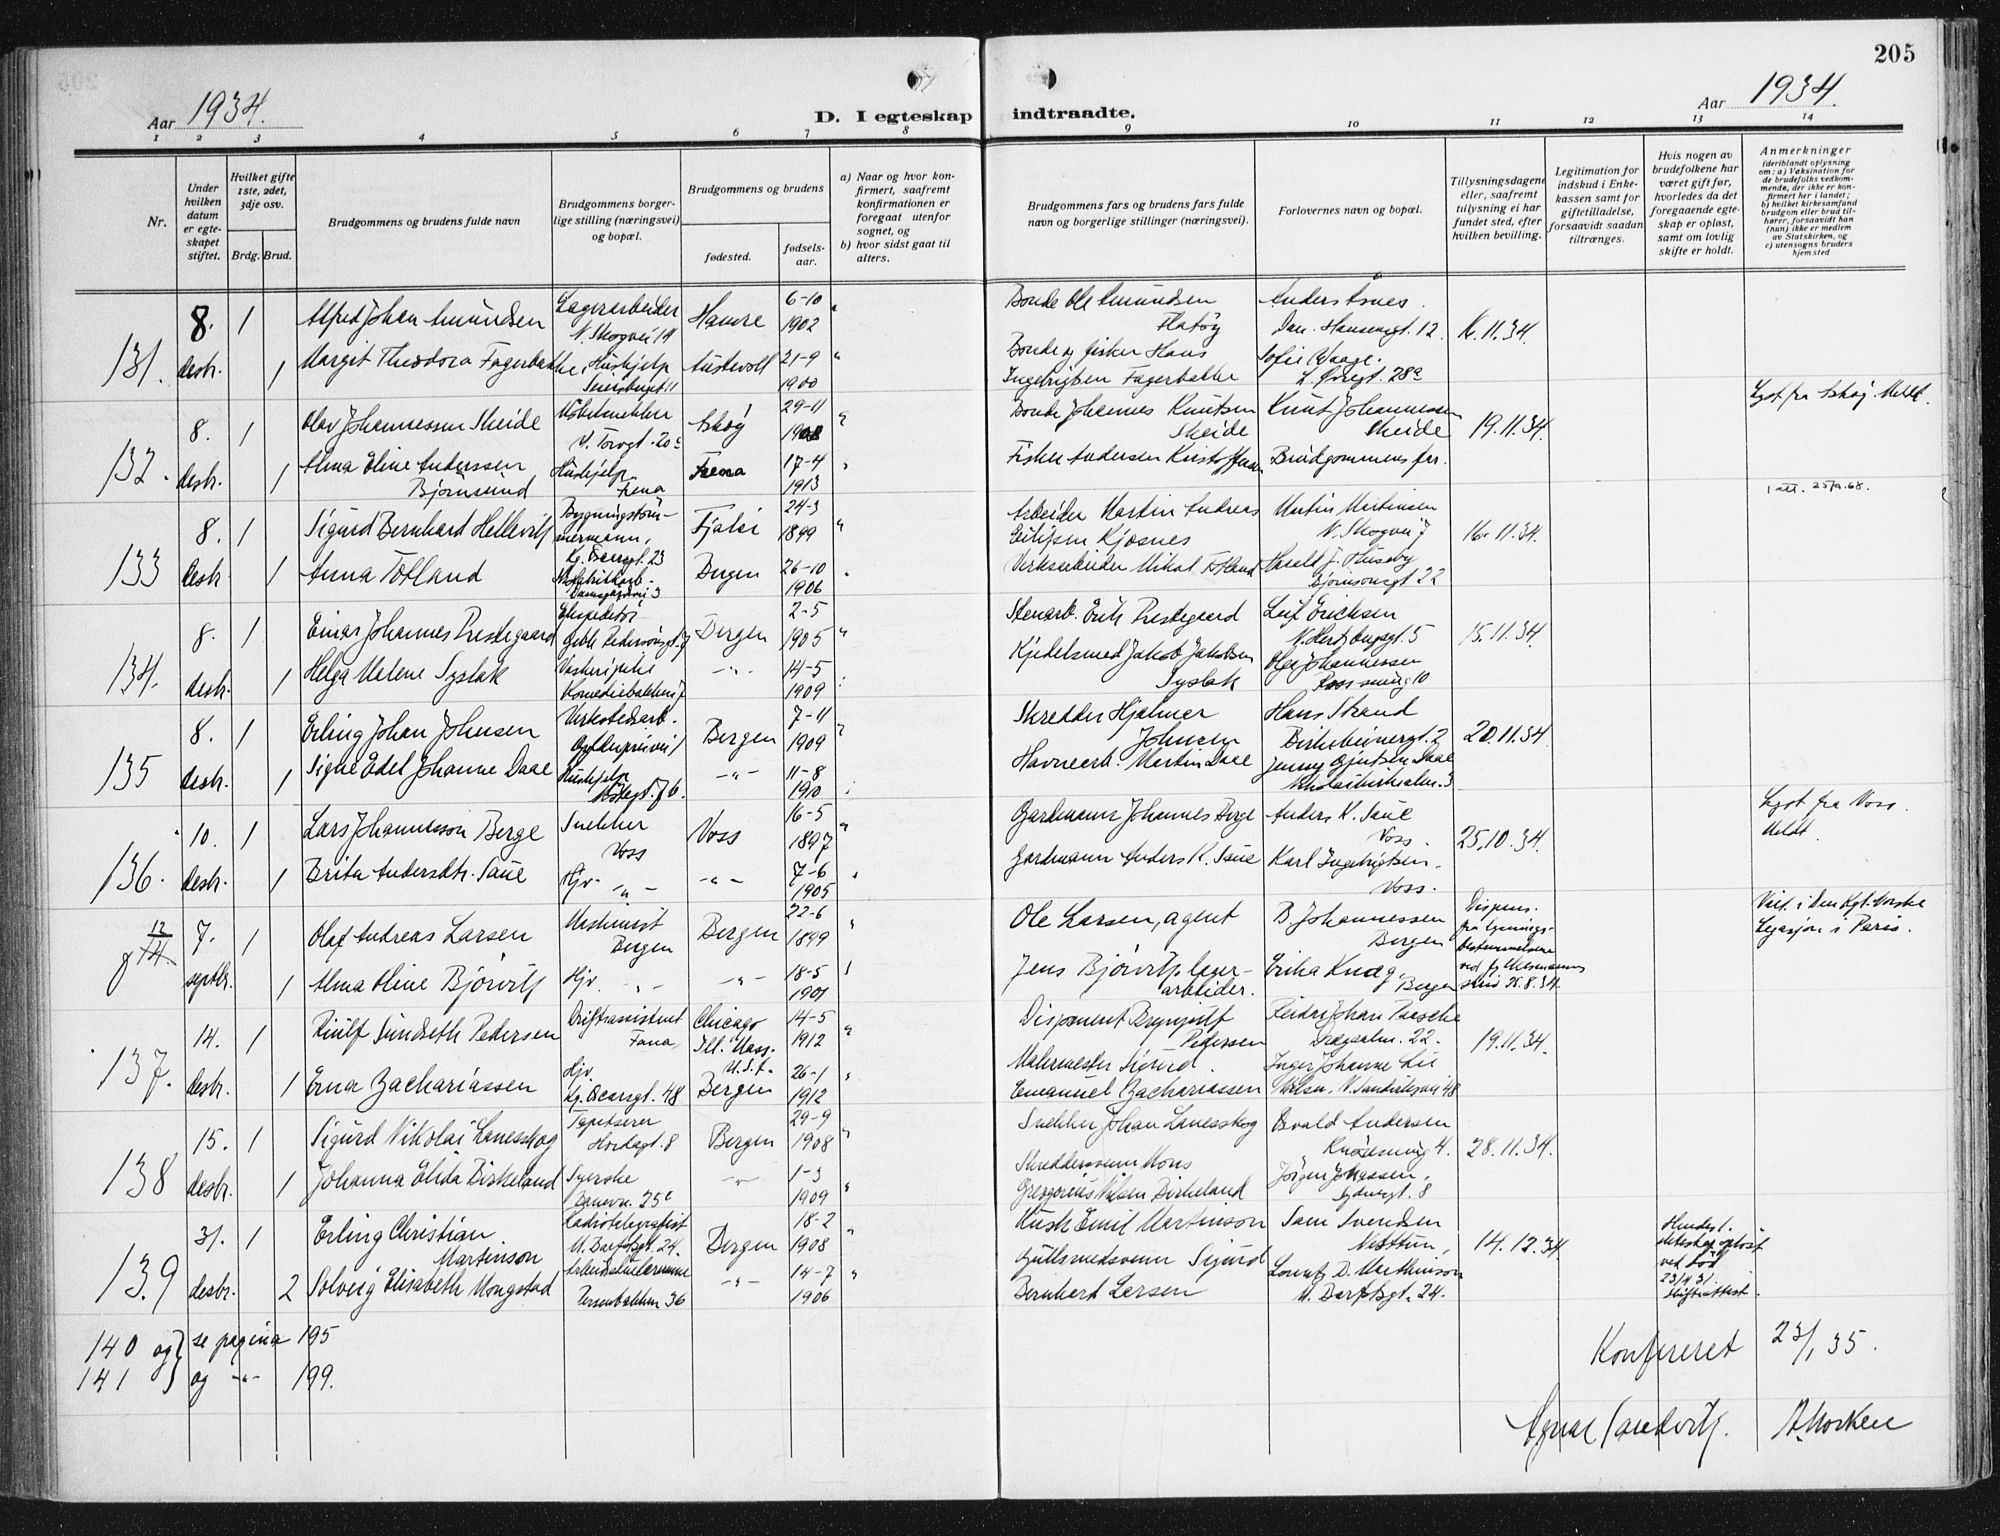 205
Aar 1934.
D. I egteskap indtraadte.
Aar 1934.
1 2 3 4 5 6 7 8 9 10 11 12 13 14
Nr.
Under hvilken datum er egteskapet stiftet.
Hvilket gifte 1ste, 2det, 3dje osv.
Brdg. Brud.
Brudgommens og brudens fulde navn
Brudgommens borgerlige stilling (næringsvei) og bopæl.
Brudgommens og brudens
fødested.
fødselsaar.
a) Naar og hvor konfirmert, saafremt konfirmationen er foregaat utenfor sognet, og
b) hvor sidst gaat til alters.
Brudgommens fars og brudens fars fulde navn og borgerlige stillinger (næringsvei).
Forlovernes navn og bopæl.
Tillysningsdagene eller, saafremt tillysning ei har fundet sted, efter hvilken bevilling.
Legitimation for indskud i Enkekassen samt for giftetilladelse, forsaavidt saadan tiltrænges.
Hvis nogen av brudefolkene har været gift før, hvorledes da det foregaaende egteskap er opløst, samt om lovlig skifte er holdt.
Anmerkninger
(deriblandt oplysning om: a) Vaksination for de brudefolks vedkommende, der ikke er konfirmert her i landet; b) hvilket kirkesamfund brudgom eller brud tilhører, forsaavidt han (hun) ikke er medlem av Statskirken, og c) utensogns bruders hjemsted
131. 8. 1 Alfred Johan Amundsen Lagerarbeider N. Skogvei 19 Hamre 6-10 1902 " Bonde Ole Amundsen Flatøy Anders Åsnes. Dan. Hansensgt. 12. 16.11.34.
desbr. 1 Margit Theodora Fagerbakke Hushjelp 11 Austevoll 21-9 1900 " Bonde og fisker Hans Ingebrigtsen Fagerbakke Sofie Waage. L. Øvregt. 28a
132. 8. 1 Olav Johannessen Skeide Møbelsnekker V. Torvgt. 20c Askøy 29-11 1908 " Bonde Johannes Knutsen Skeide Knut Johannessen Skeide 19.11.34. Lyst fra Askøy. Meldt.
desbr. 1 Alma Eline Anderssen Bjørnsund Hushjelp Fræna Fræna 17-4 1913 " Fisker Andersen Kristoffersen Brudgommens far.
133 8. 1 Sigurd Bernhard Hellevik Bygningstømmermann, Kg. Oscarsgt. 23 Fjaler 24-3 1899 " Arbeider Martin Andreas Kjosnes Martin Martinsen N. Skogvei 7 16.11.34. 1 att. 25/9.68.
desbr. 1 Anna Totland Fabrikkarb. Damsgårdsvei 3 Bergen 26-10 1906 " Verksarbeider Mikal Totland Harald J. Huseby Bjørnsonsgt. 22
134. 8. 1 Einar Johannes Prestegaard Ekspeditør Geble Pedersønsgt. 7 Bergen 2-5 1905 " Stenarb. Erik Prestegaard Leif Ericksen N. Hertzbugsgt. 5 15.11.34.
desbr. 1 Helga Malene Syslak Vaskeripike Komediebakken 7 -"- 14-5 1909 Kjedelsmed Jakob Jakobsen Syslak Olga Johannessen 10
135 8. 1 Erling Johan Johnsen Verkstedsarb. Bergen 7-11 1909 " Skredder Hjalmar Johnsen Hans Strand Birkebeinergt. 2 20.11.34.
desbr. 1 Signe Edel Johanne Daae Hushjelp 76. -"- 11-8 1910 Havnearb. Martin Daae Jenny Gjertsen Daae Nikolaikirkealm. 3
136. 10. 1 Lars Johannesson Berge Snekker Voss Voss 16-5 1897 " Gardmann Johannes Berge Anders K. Saue Voss. 25.10.34. Lyst fra Voss. Meldt.
desbr. 1 Brita Andersdtr. Saue Hjv. -"- -"- 7-6 1905 " Gardmann Anders K. Saue Karl Ingebrigtsen, Voss.
7. 1 Olaf Andreas Larsen Maskinist Bergen Bergen 22-6 1899 " Ole Larsen, agent B. Johannessen Bergen Dispens. fra lysningsbestemmelsene ved fylkesmannens skriv 25.8.34. Viet i den Kgl. Norske Legasjon i Paris.
septbr. 1 Alma Oline Bjørvik Hjv. -"- -"- 18-5 1901 Jens Bjørvik, lagerarbeider. Erika Knag, Bergen
137. 14. 1 Riulf Sundseth Pedersen Driftsassistent Fana, Chicago Ill. Mass. U.S.A. 14-5 1912 " Disponent Brynjulf Pedersen Johan Paasche 22. 19.11.34.
desbr. 1 Erna Zachariassen Hjv. Kg. Oscarsgt. 48 Bergen 26-1 1912 " Malermester Sigurd Emanuel Zachariassen Inger Johanne Lie Nilsen. 48
138 15. 1 Sigurd Nikolai Lanesskog Tapetserer Hordagt. 8 Bergen 29-9 1908 " Snekker Johan Lanesskog Osvald Andersen 4. 28.11.34.
desbr. 1 Johanna Elida Birkeland Syerske 25c -"- 1-3 1909 " Skreddersvenn Mons Gregorius Nilsen Birkeland Jørgen Johnssen, 8
139 31. 1 Erling Christian Martinson Radiotelegrafist M. Dorfsgt. 24. Bergen 18-2 1908 " Kusk Emil Martinson Sam Svendsen Nesttun, 14.12.34. Hendes 1. ekteskap opløst ved død 23/4 31. Skifteattest.
desbr. 2 Solveig Elisabeth Mongstad Persenbakken 36 -"- 14-7 1906 " Gullsmedsvenn Sigurd Bernhard Larsen Lorentz D. Marthinson M. Dorfsgt. 24.
140 og } se pagina 195
141 } og -"- 199.
Konfereret 23/1 35.
Agnar Sandvik. A. Morken